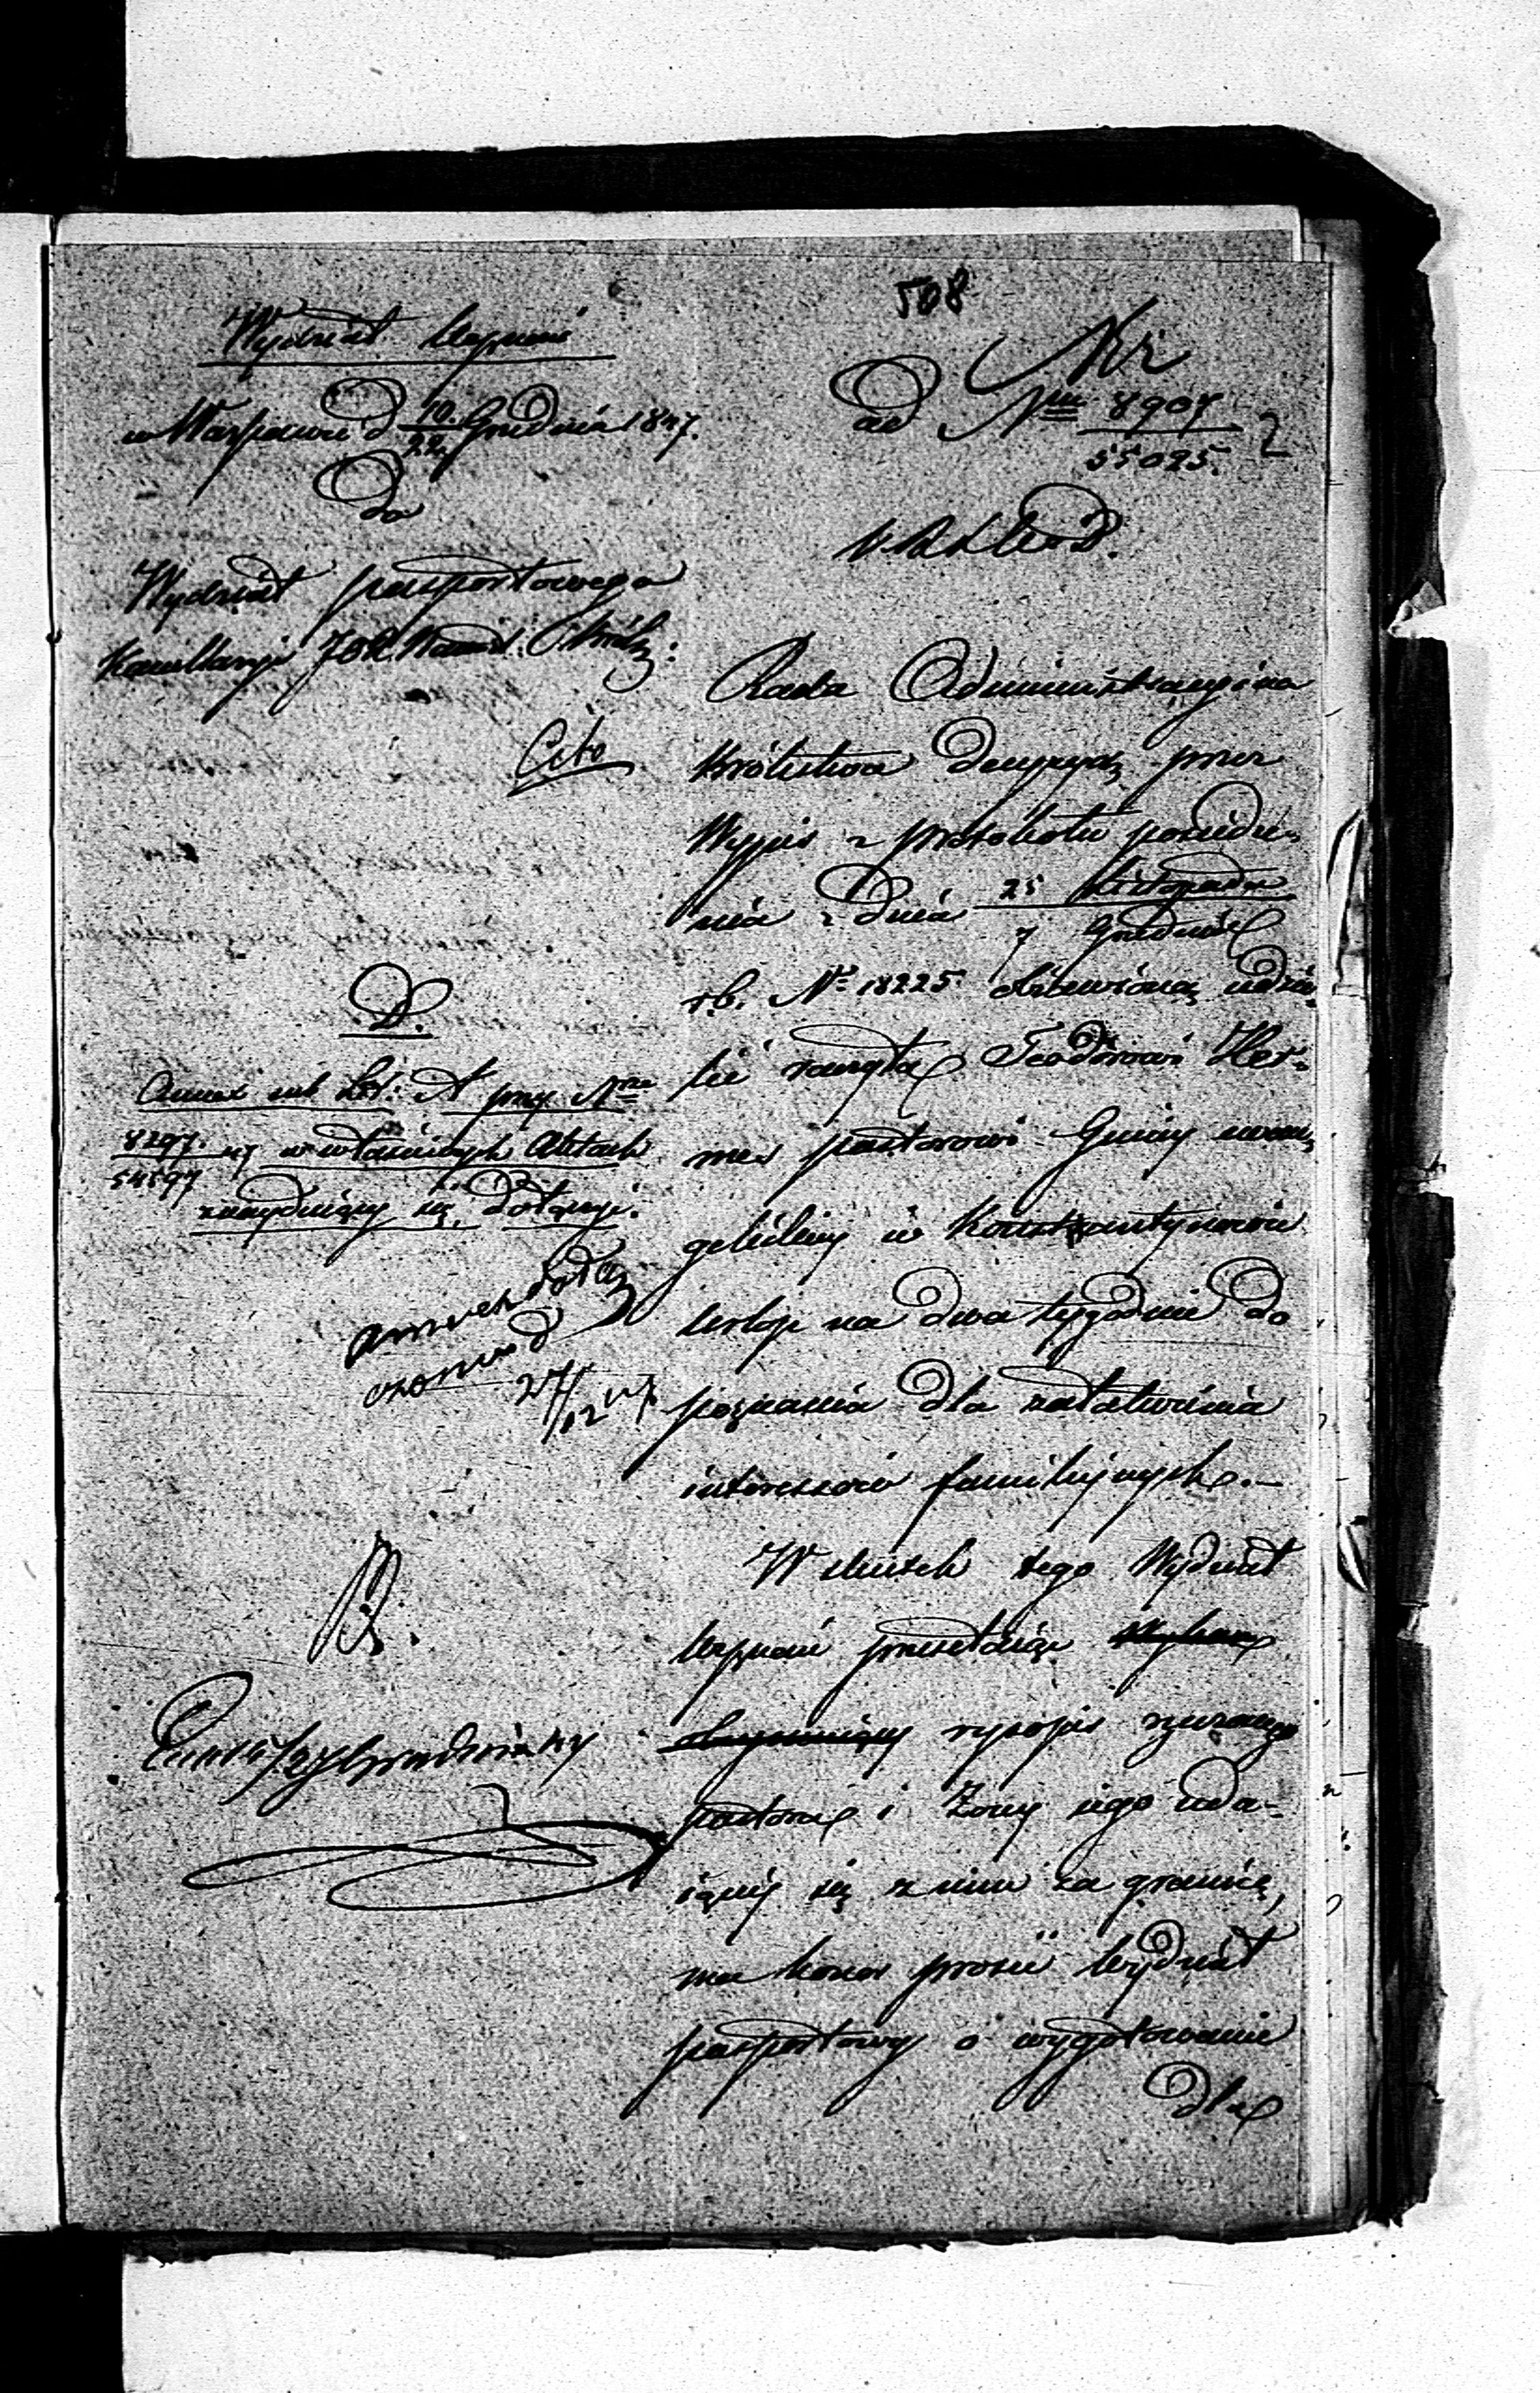 508
Wydział Wyznań
w Warszawie d 10/22 Grudnia 1847.
Do
Wydziału paszportowego
Kancellaryi JOX. Namiest. Król:
Cito
ad Nrum 8907/55025.
Rada Administracyjna
Królestwa decyzyą przez
Wypis z protokołu posiedze-
nia z dnia 25 Listopada / 7 Grudnia
r.b. No 18225 objawioną udzie-
lić raczyła Teodorowi Her-
mes pastorowi Gminy ewan-
gelickiej w Konstantynowie
urlop na dwa tygodnie do
poznania dla załatwienia
interessów familijnych.—
W skutek tego Wydział
Wyznań przesełając
rysopis rzeczonego
pastora i Żony jego uda-
iącej się z nim za granicę,
ma honor prosić Wydział
paszportowy o wygotowanie
dla
D.
Annex sub Lit: A przy Nrze
8297/54597 47 w właściwych Aktach
znayduiący się, dołączyć.
annex dołą
27/12 47